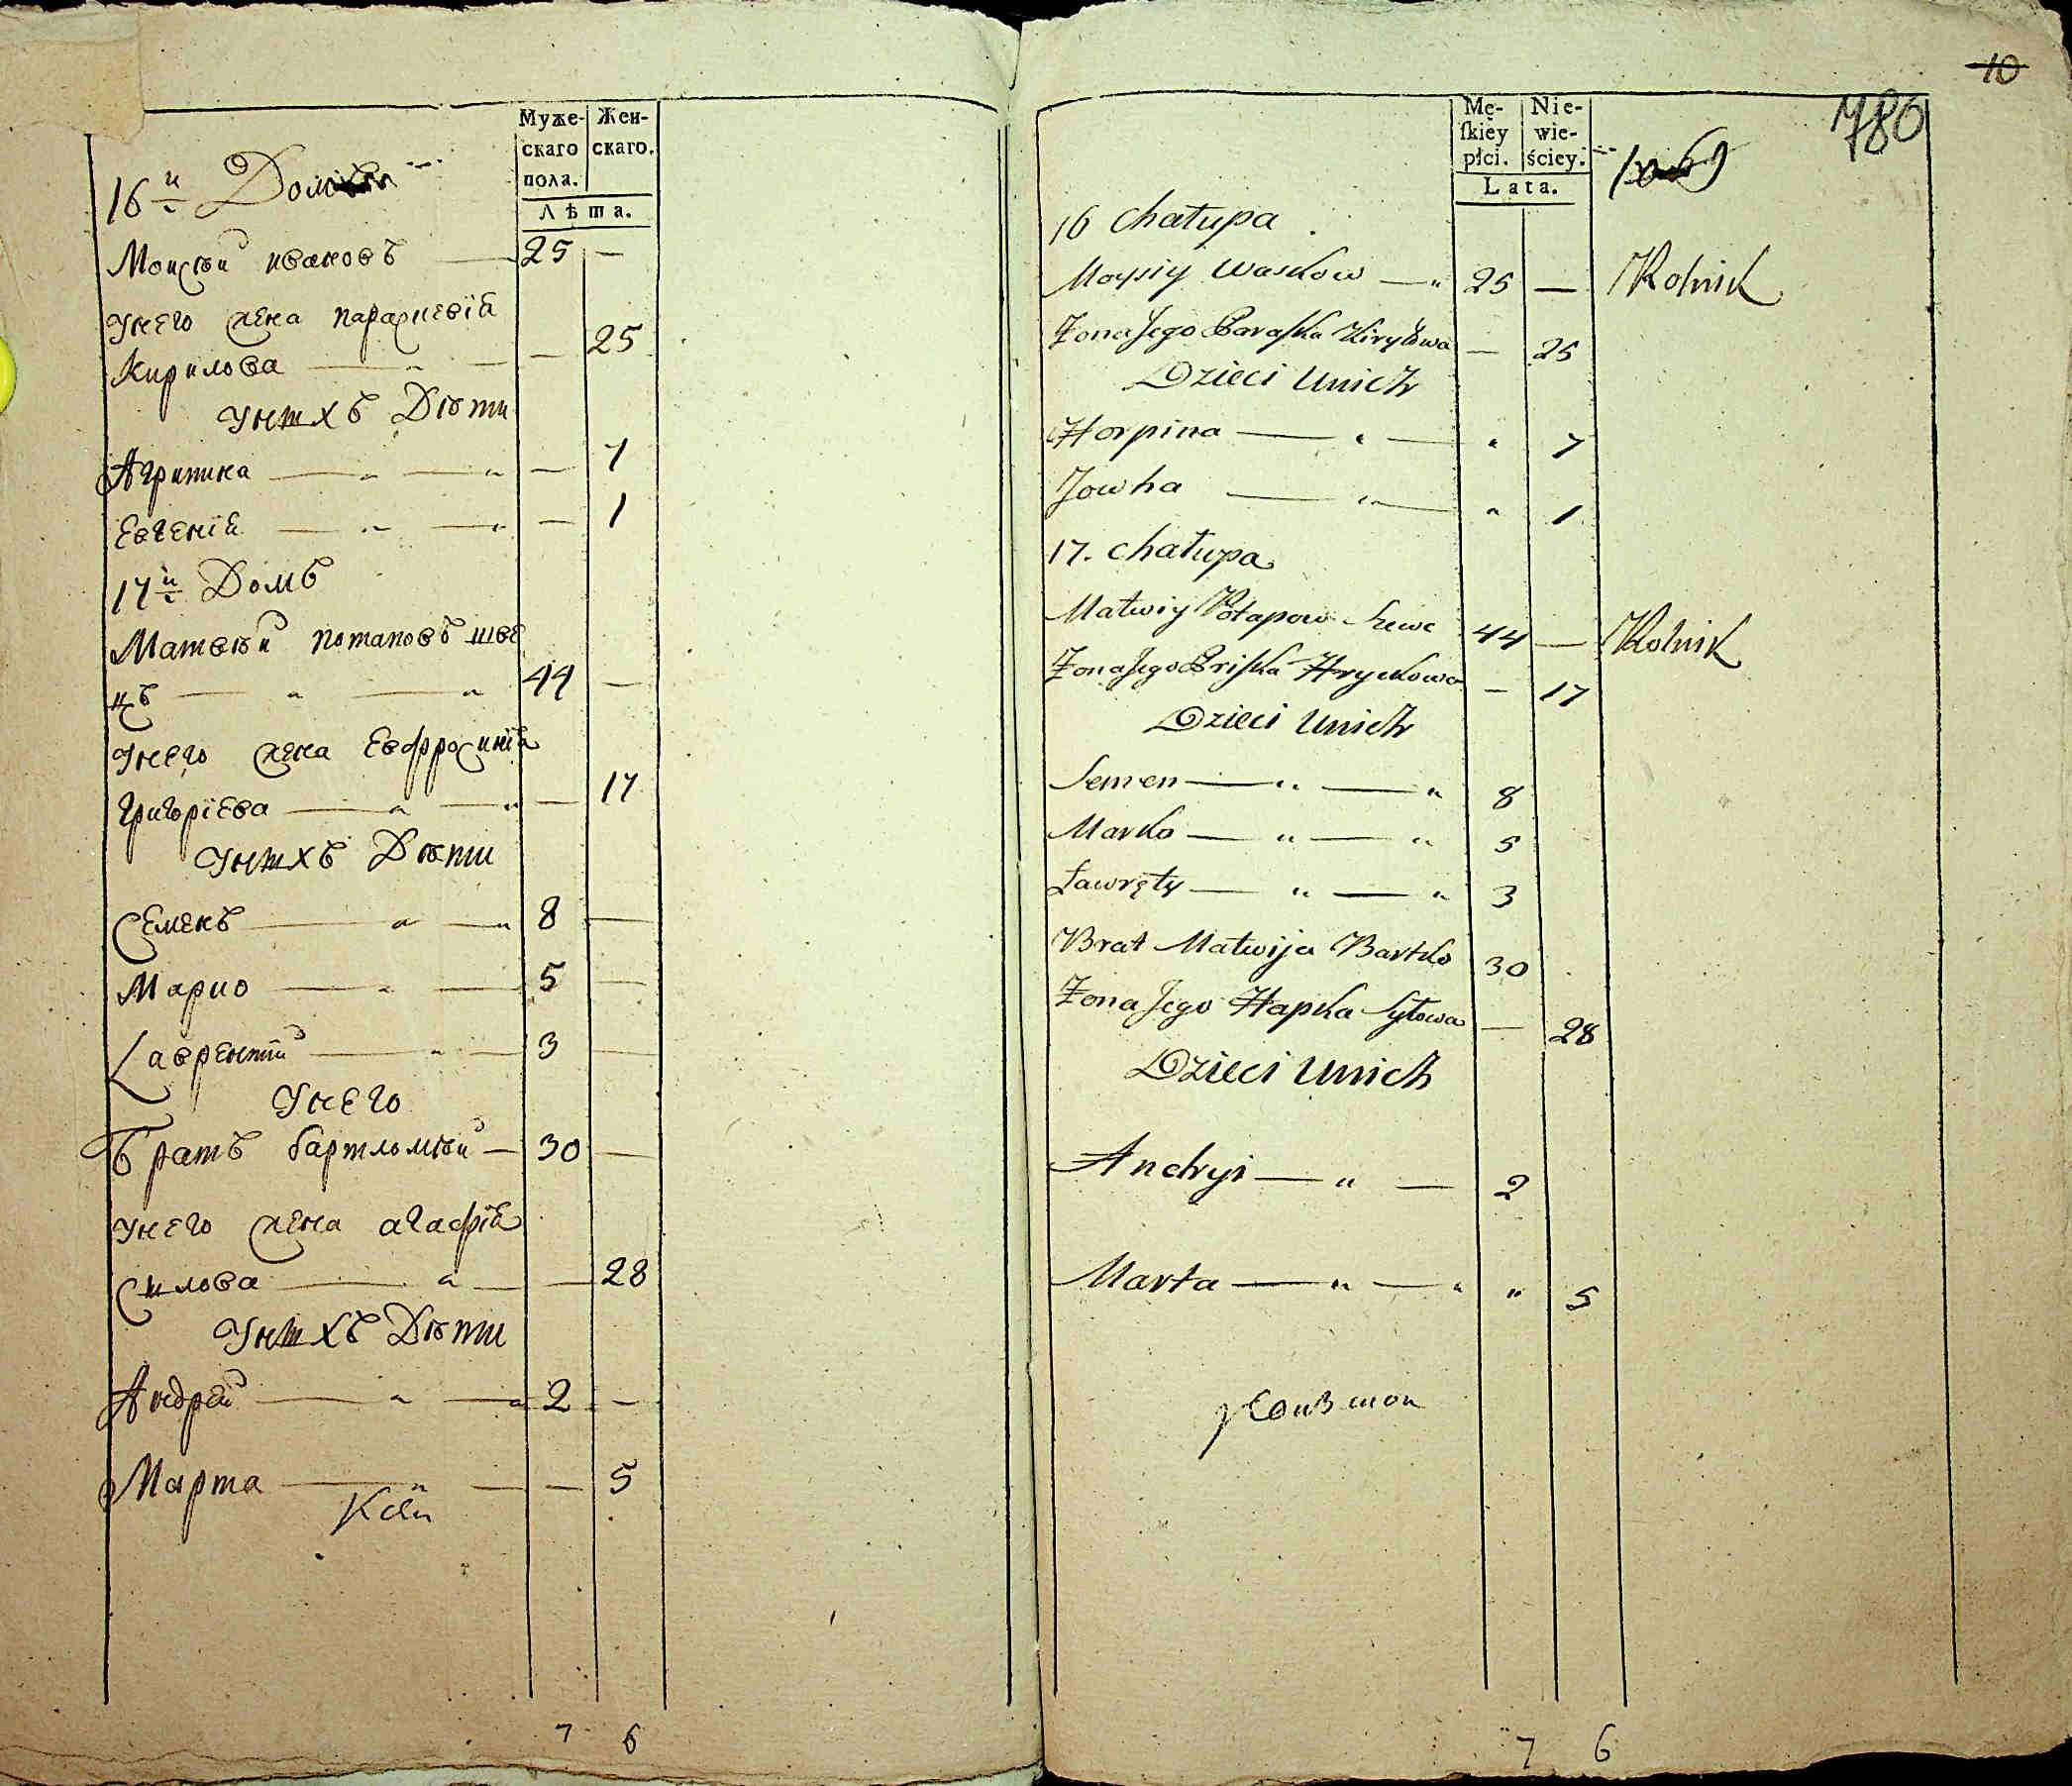 Муже-
скаго
пола.
Жен-
скаго.
Лѣта.
16й Домъ
Моисѣй ивановъ — 25 —
Унего жена параскевіа
Кирилова — „ — — 25
Унихъ Дѣти
Агрипина — „ — „ — 7
Евгеніа — „ — „ — 1
17й Домъ
Матвѣй потаповъ шве
цъ — „ — „ 44 —
Унего жена Евфросиніа
григоріева — „ — „ — 17
Унихъ Дѣти
Семенъ — „ — „ 8 —
Марко — „ — 5 —
Лаврентій — „ — 3 —
Унего
Братъ бартломѣй — 30 —
Унего жена агафіа
Силова — „ — — 28
Унихъ Дѣти
Андрей — „ — „ 2 —
Марта — „ — — 5
7 6
10
786
Mę-
ſkiey
płci.
Nie-
wie-
ściey.
Lata.
16 Chałupa
Moysiy Waskow — „ 25 — Rolnik
Żona Jego Paraſka Kiryłowa — 25
Dzieci Unich
Horpina — „ — „ 7
Jowha — „ — „ 1
17. Chałupa
Matwiy Potapow Szewc 44 — Rolnik
Żona Jego Priſka Hryckowa — 17
Dzieci Unich
Semen — „ — „ 8
Marko — „ — „ 5
Ławręty — „ — „ 3
Brat Matwija Bartko 30
Żona Jego Hapka Syłowa — 28
Dzieci Unich
Andryi — „ — 2
Marta — „ — „ „ 5
7 6